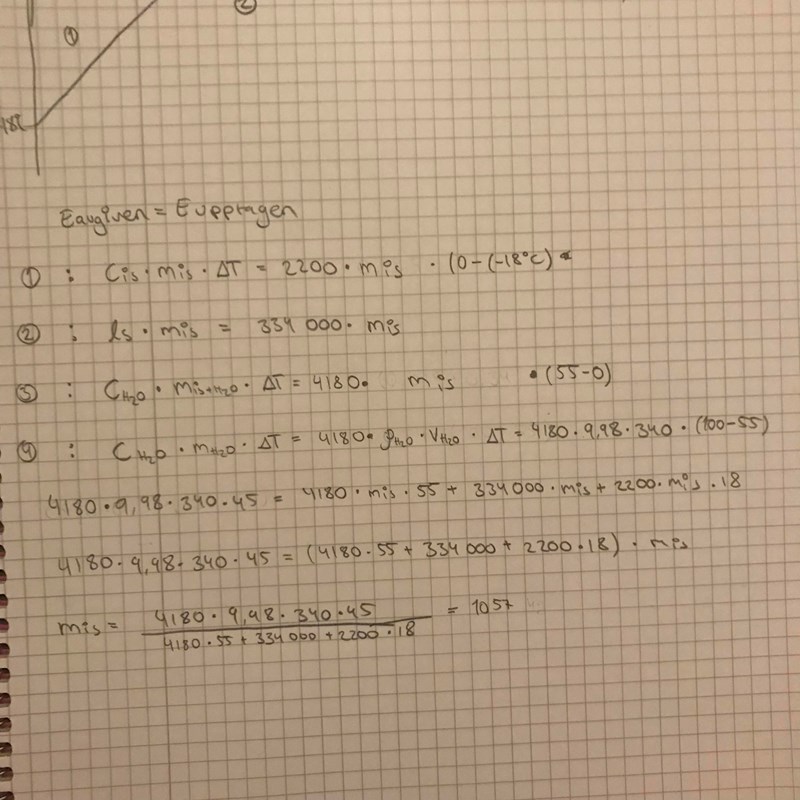 ②
①
-18℃
Eavgiven = Eupptagen
① : Cis · mis · ΔT = 2200 · mis · (0-(-18°C)
② : ls · mis = 334 000 · mis
③ : CH₂O · mis+H₂O · ΔT = 4180 · mis · (55-0)
④ : CH₂O · mH₂O · ΔT = 4180 · ρH₂O · VH₂O · ΔT = 4180 · 9,98 · 340 · (100-55)
4180 · 9,98 · 340 · 45 = 4180 · mis · 55 + 334000 · mis + 2200 · mis · 18
4180 · 9,98 · 340 · 45 = (4180 · 55 + 334 000 + 2200 · 18) · mis
mis = 4180 · 9,98 · 340 · 45 / 4180 · 55 + 334 000 + 2200 · 18 = 1057